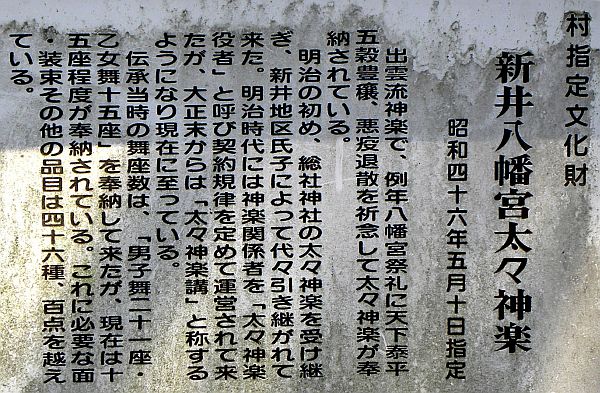 村指定文化財
新井八幡宮太々神楽
昭和四十六年五月十日指定
出雲流神楽で、例年八幡宮祭礼に天下泰平
五穀豊穣、悪疫退散を祈念して太々神楽が奉
納されている。
明治の初め、総社神社の太々神楽を受け継
ぎ、新井地区氏子によって代々引き継がれて
来た。明治時代には神楽関係者を「太々神楽
役者」と呼び契約規律を定めて運営されて来
たが、大正末からは「太々神楽講」と称する
ようになり現在に至っている。
伝承当時の舞座数は、「男子舞二十一座・
乙女舞十五座」を奉納して来たが、現在は十
五座程度が奉納されている。これに必要な面
・装束その他の品目は四十六種、百点を越え
ている。